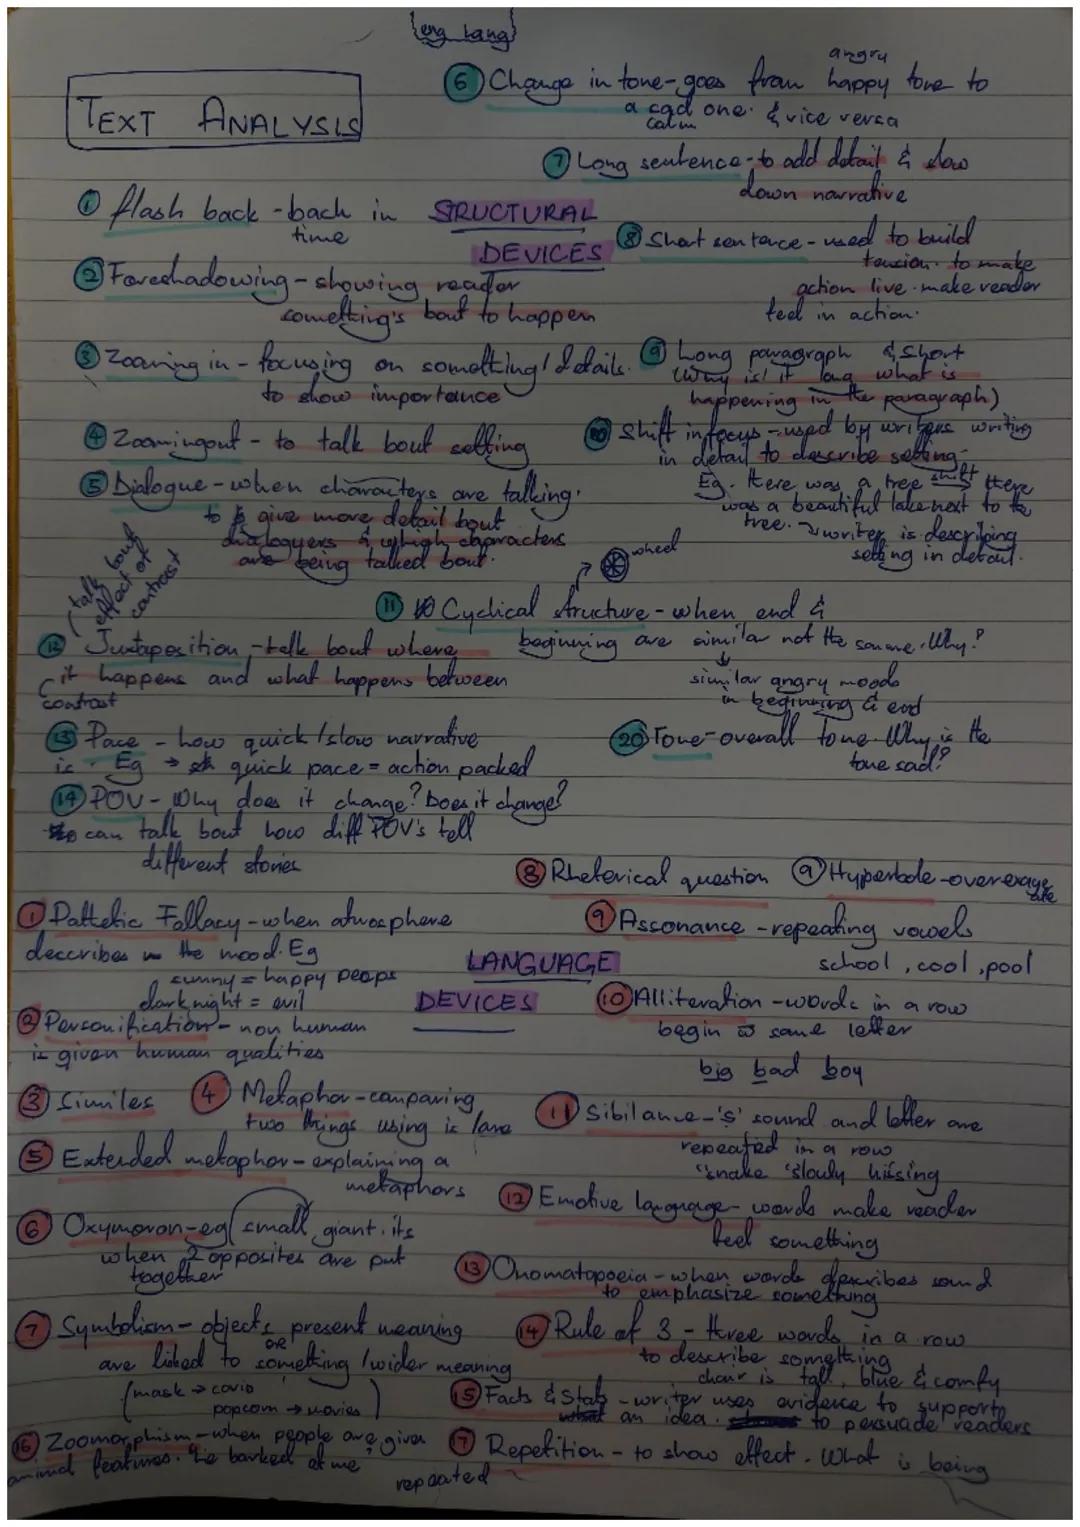 eng lang
TEXT ANALYSIS
STRUCTURAL
DEVICES
① flash back - back in
time
② Foreshadowing - showing reader
something's bout to happen
③ Zooming in - focusing on something/details.
to show importance
④ Zooming out - to talk bout setting
⑤ Dialogue - when characters are talking.
to give more detail bout
dialoguers & which characters
are being talked bout.
⑥ Change in tone - goes from happy tone to
angry
a sad one. & vice versa
calm
⑦ Long sentence - to add detail & slow
down narrative
⑧ Short sentence - used to build
tension. to make
action live. make reader
feel in action.
⑨ Long paragraph & short
(Why is it long what is
happening in the paragraph)
⑩ Shift in focus - used by writers writing
in detail to describe setting.
Eg. there was a tree shift there
was a beautiful lake next to the
tree. writer is describing
setting in detail.
wheel
⑪ Cyclical structure - when end &
beginning are similar not the same. Why?
similar angry moods
in beginning & end
talk bout
effect of
contrast
⑫ Juxtaposition - talk bout where
it happens and what happens between
contrast
⑬ Pace - how quick/slow narrative
is. Eg → quick pace = action packed
⑭ POV - Why does it change? Does it change?
can talk bout how diff POV's tell
different stories
⑳ Tone - overall tone. Why is the
tone sad?
LANGUAGE
DEVICES
① Pathetic Fallacy - when atmosphere
describes the mood. Eg
sunny = happy peeps
dark night = evil
② Personification - non human
is given human qualities
③ Similes ④ Metaphor - comparing
two things using is/are
⑤ Extended metaphor - explaining a
metaphors
⑥ Oxymoron - eg small giant. its
when 2 opposites are put
together
⑦ Symbolism - objects present meaning
OR
are linked to something/wider meaning
(mask → covid
popcorn → movies)
⑧ Rhetorical question ⑨ Hyperbole - overexagerate
⑨ Assonance - repeating vowels
school, cool, pool
⑩ Alliteration - words in a row
begin w same letter
big bad boy
⑪ Sibilance - 's' sound and letter are
repeated in a row
"snake 'slowly hissing
⑫ Emotive language - words make reader
feel something
⑬ Onomatopoeia - when words describes sound
to emphasize something
⑭ Rule of 3 - three words in a row
to describe something
chair is tall, blue & comfy
⑮ Facts & Stats - writer uses evidence to support
an idea. to persuade readers
⑯ Zoomorphism - when people are given
animal features. "he barked at me"
⑰ Repetition - to show effect. What is being
repeated